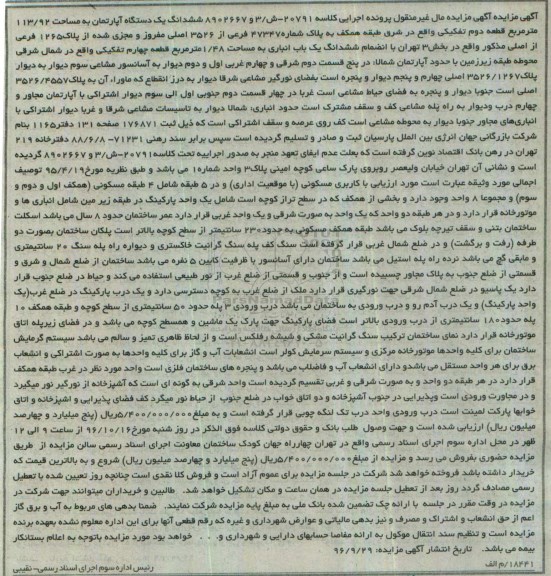 آگهی مزایده آگهی مزایده مال غیرمنقول پرونده اجرایی کلاسه ۲۰۷۹۱-ش/۳ و ۸۹۰۲۶۶۷ ششدانگ یک دستگاه آپارتمان به مساحت ۱۱۳/۹۲
مترمربع قطعه دوم تفکیکی واقع در شرق طبقه همکف به پلاک شماره۴۷۳۴۷ فرعی از ۳۵۲۶ اصلی مفروز و مجزی شده از پلاک۱۲۶۵ فرعی
از اصلی مذکور واقع در بخش۳ تهران با انضمام ششدانگ یک باب انباری به مساحت ۱/۴۸مترمربع قطعه چهارم تفکیکی واقع در شمال شرقی
محوطه طبقه زیرزمین با حدود آپارتمان شمالا: در پنج قسمت دوم شرقی و چهارم غربی اول و دوم دیوار به آسانسور مشاعی سوم دیوار به دیوار
پلاک۳۵۲۶/۱۲۶۷ اصلی چهارم و پنجم دیوار و پنجره است بفضای نورگیر مشاعی شرقا دیوار به درز انقطاع که ماوراء آن به پلاک۳۵۲۶/۴۵۵۷
اصلی است جنوبا دیوار و پنجره به فضای حیاط مشاعی است غربا در چهار قسمت دوم جنوبی اول الی سوم دیوار اشتراکی با آپارتمان مجاور و
چهارم درب ودیوار به راه پله مشاعی کف و سقف مشترک است حدود انباری: شمالا دیوار به تاسیسات مشاعی شرقا و غربا دیوار اشتراکی با
انباری‌های مجاور جنوبا دیوار به محوطه مشاعی است کف روی عرصه و سقف اشتراکی است که ذیل ثبت ۱۷۶۸۷۱ صفحه ۱۳۱ دفتر۱۱۶۵ بنام
شرکت بازرگانی جهان انرژی بین الملل پارسیان ثبت و صادر و تسلیم گردیده است سپس برابر سند رهنی ۷۱۲۳۱-۸۸/۶/۸ دفترخانه ۲۱۹
تهران در رهن بانک اقتصاد نوین گرفته است که بعلت عدم ایفای تعهد منجر به صدور اجراییه تحت کلاسه۲۰۷۹۱-ش/۳ و ۸۹۰۲۶۶۷ گردیده
است و نشانی آن تهران خیابان ولیعصر روبروی پارک ساعی کوچه امینی پلاک۳ واحد شماره۱ می باشد و طبق نظریه مورخ۹۵/۴/۱۹ توصیف
اجمالی مورد وثیقه عبارت است مورد ارزیابی با کاربری مسکونی (با موقعیت اداری) و در ۵ طبقه شامل ۴ طبقه مسکونی (همکف اول و دوم و
سوم) و مجموعا ۸ واحد وجود دارد و بخشی از همکف که در سطح تراز کوچه است شامل یک واحد پارکینگ در طبقه زیر مین شامل انباری ها و
موتورخانه قرار دارد و در هر طبقه دو واحد که یک واحد به صورت شرقی و یک واحد غربی قرار دارد عمر ساختمان حدود ۸ سال می باشد اسکلت
ساختمان بتنی و سقف تیرچه بلوک می باشد طبقه همکف مسکونی به حدود۲۳۰ سانتیمتر از سطح کوچه بالاتر است پلکان ساختمان بصورت دو
طرفه (رفت و برگشت) و در ضلع شمال غربی قرار گرفته است سنگ کف پله سنگ گرانیت خاکستری و دیواره راه پله سنگ ۲۰ سانتیمتری
و مابقی گچ می باشد نرده راه پله استیل می باشد ساختمان دارای آسانسور با ظرفیت کابین ۵ نفره می باشد ساختمان از ضلع شمال و شرق و
قسمتی از ضلع جنوب به پلاک مجاور چسبیده است و از جنوب و قسمتی از ضلع غرب از نور طبیعی استفاده می کند و حیاط در ضلع جنوب قرار
دارد یک پاسیو در ضلع شمال شرقی جهت نورگیری قرار دارد ملک از ضلع غرب به کوچه دسترسی دارد و یک درب پارکینگ در ضلع غرب(یک
واحد پارکینگ) و یک درب آدم رو و درب ورودی به ساختمان می باشد درب ورودی ۳ پله حدود ۵۰ سانتیمتری از سطح کوچه و طبقه همکف ۱۰
پله حدود۱۸۰ سانتیمتری از درب ورودی بالاتر است فضای پارکینگ جهت پارک یک ماشین و همسطح کوچه می باشد و در فضای زیرپله اتاق
موتورخانه قرار دارد نمای ساختمان ترکیب سنگ گرانیت مشکی و شیشه رفلکس است و از لحاظ ظاهری تمیز و سالم می باشد سیستم گرمایش
ساختمان برای کلیه واحدها موتورخانه مرکزی و سیستم سرمایش کولر است انشعابات آب و گاز برای کلیه واحدها به صورت اشتراکی و انشعاب
برق برای هر واحد مستقل می باشدو دارای انشعاب آب و فاضلاب می باشد و پنجره های ساختمان فلزی است واحد مورد نظر در غرب طبقه همکف
قرار دارد در هر طبقه دو واحد و به صورت شرقی و غربی تقسیم گردیده است واحد شرقی به گونه ای است که آشپزخانه از نورگیر نور میگیرد
و در مجاورت ورودی است وپذیرایی در جنوب آشپزخانه و دو اتاق خواب در ضلع جنوب از حیاط نور میگرد کف فضای پذیرایی و اشپزخانه و اتاق
خوابها پارکت لمینت است درب ورودی واحد درب تک لنگه چوبی قرار گرفته است و به مبلغ۵/۴۰۰/۰۰۰/۰۰۰ریال (پنج میلیارد و چهارصد
میلیون ریال) ارزیابی شده است و جهت وصول طلب بانک و حقوق دولتی کلاسه فوق الذکر در روز شنبه مورخ۹۶/۱۰/۱۶ از ساعت ۹ الی ۱۲
ظهر در محل اداره سوم اجرای اسناد رسمی واقع در تهران چهارراه جهان کودک ساختمان معاونت اجرای اسناد رسمی سالن مزایده از طریق
مزایده حضوری بفروش می رسد و مزایده از مبلغ۵/۴۰۰/۰۰۰/۰۰۰ریال (پنج میلیارد و چهارصد میلیون ریال) شروع و به بالاترین قیمت که
خریدار داشته باشد فروخته خواهد شد شرکت در جلسه مزایده برای عموم آزاد است و فروش کلا نقدی است چنانچه روز تعیین شده با تعطیل
رسمی مصادف گردد روز بعد از تعطیل جلسه مزایده در همان ساعت و مکان تشکیل خواهد شد. طالبین و خریداران میتوانند جهت شرکت در
مزایده در وقت مقرر در جلسه با ارائه چک تضمین شده بانک ملی به مبلغ پایه مزایده شرکت نمایند. ضمنا بدهی های مربوط به آب و برق گاز
اعم از حق انشعاب و اشتراک و مصرف و نیز بدهی مالیاتی و عوارض شهرداری و غیره که رقم قطعی آنها برای این اداره معلوم نشده بعهده برنده
مزایده است و تنظیم سند انتقال موکول به ارائه مفاصا حسابهای دارایی و شهرداری و. . . خواهد بود مورد مزایده باتوجه به اعلام بستانکار
بیمه می باشد. تاریخ انتشار آگهی مزایده: ۹۶/۹/۲۹
۱۸۴۴۱/م الف رئیس اداره سوم اجرای اسناد رسمی- نقیبی